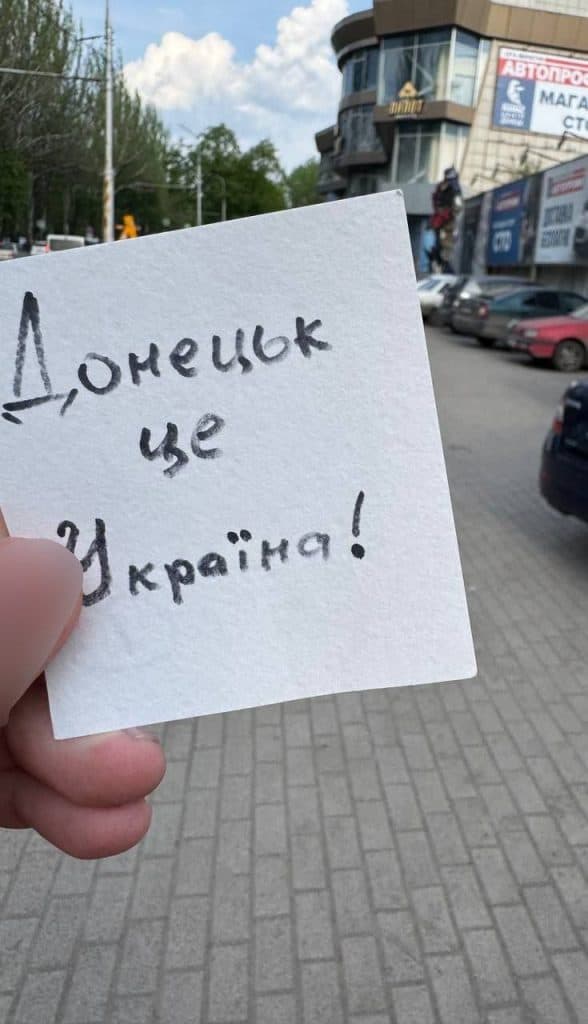 Донецьк
це
Україна!
АВТОПРОФ
МАГА
СТО
СТО
ДОСТАВКА
БЕСПЛАТНО